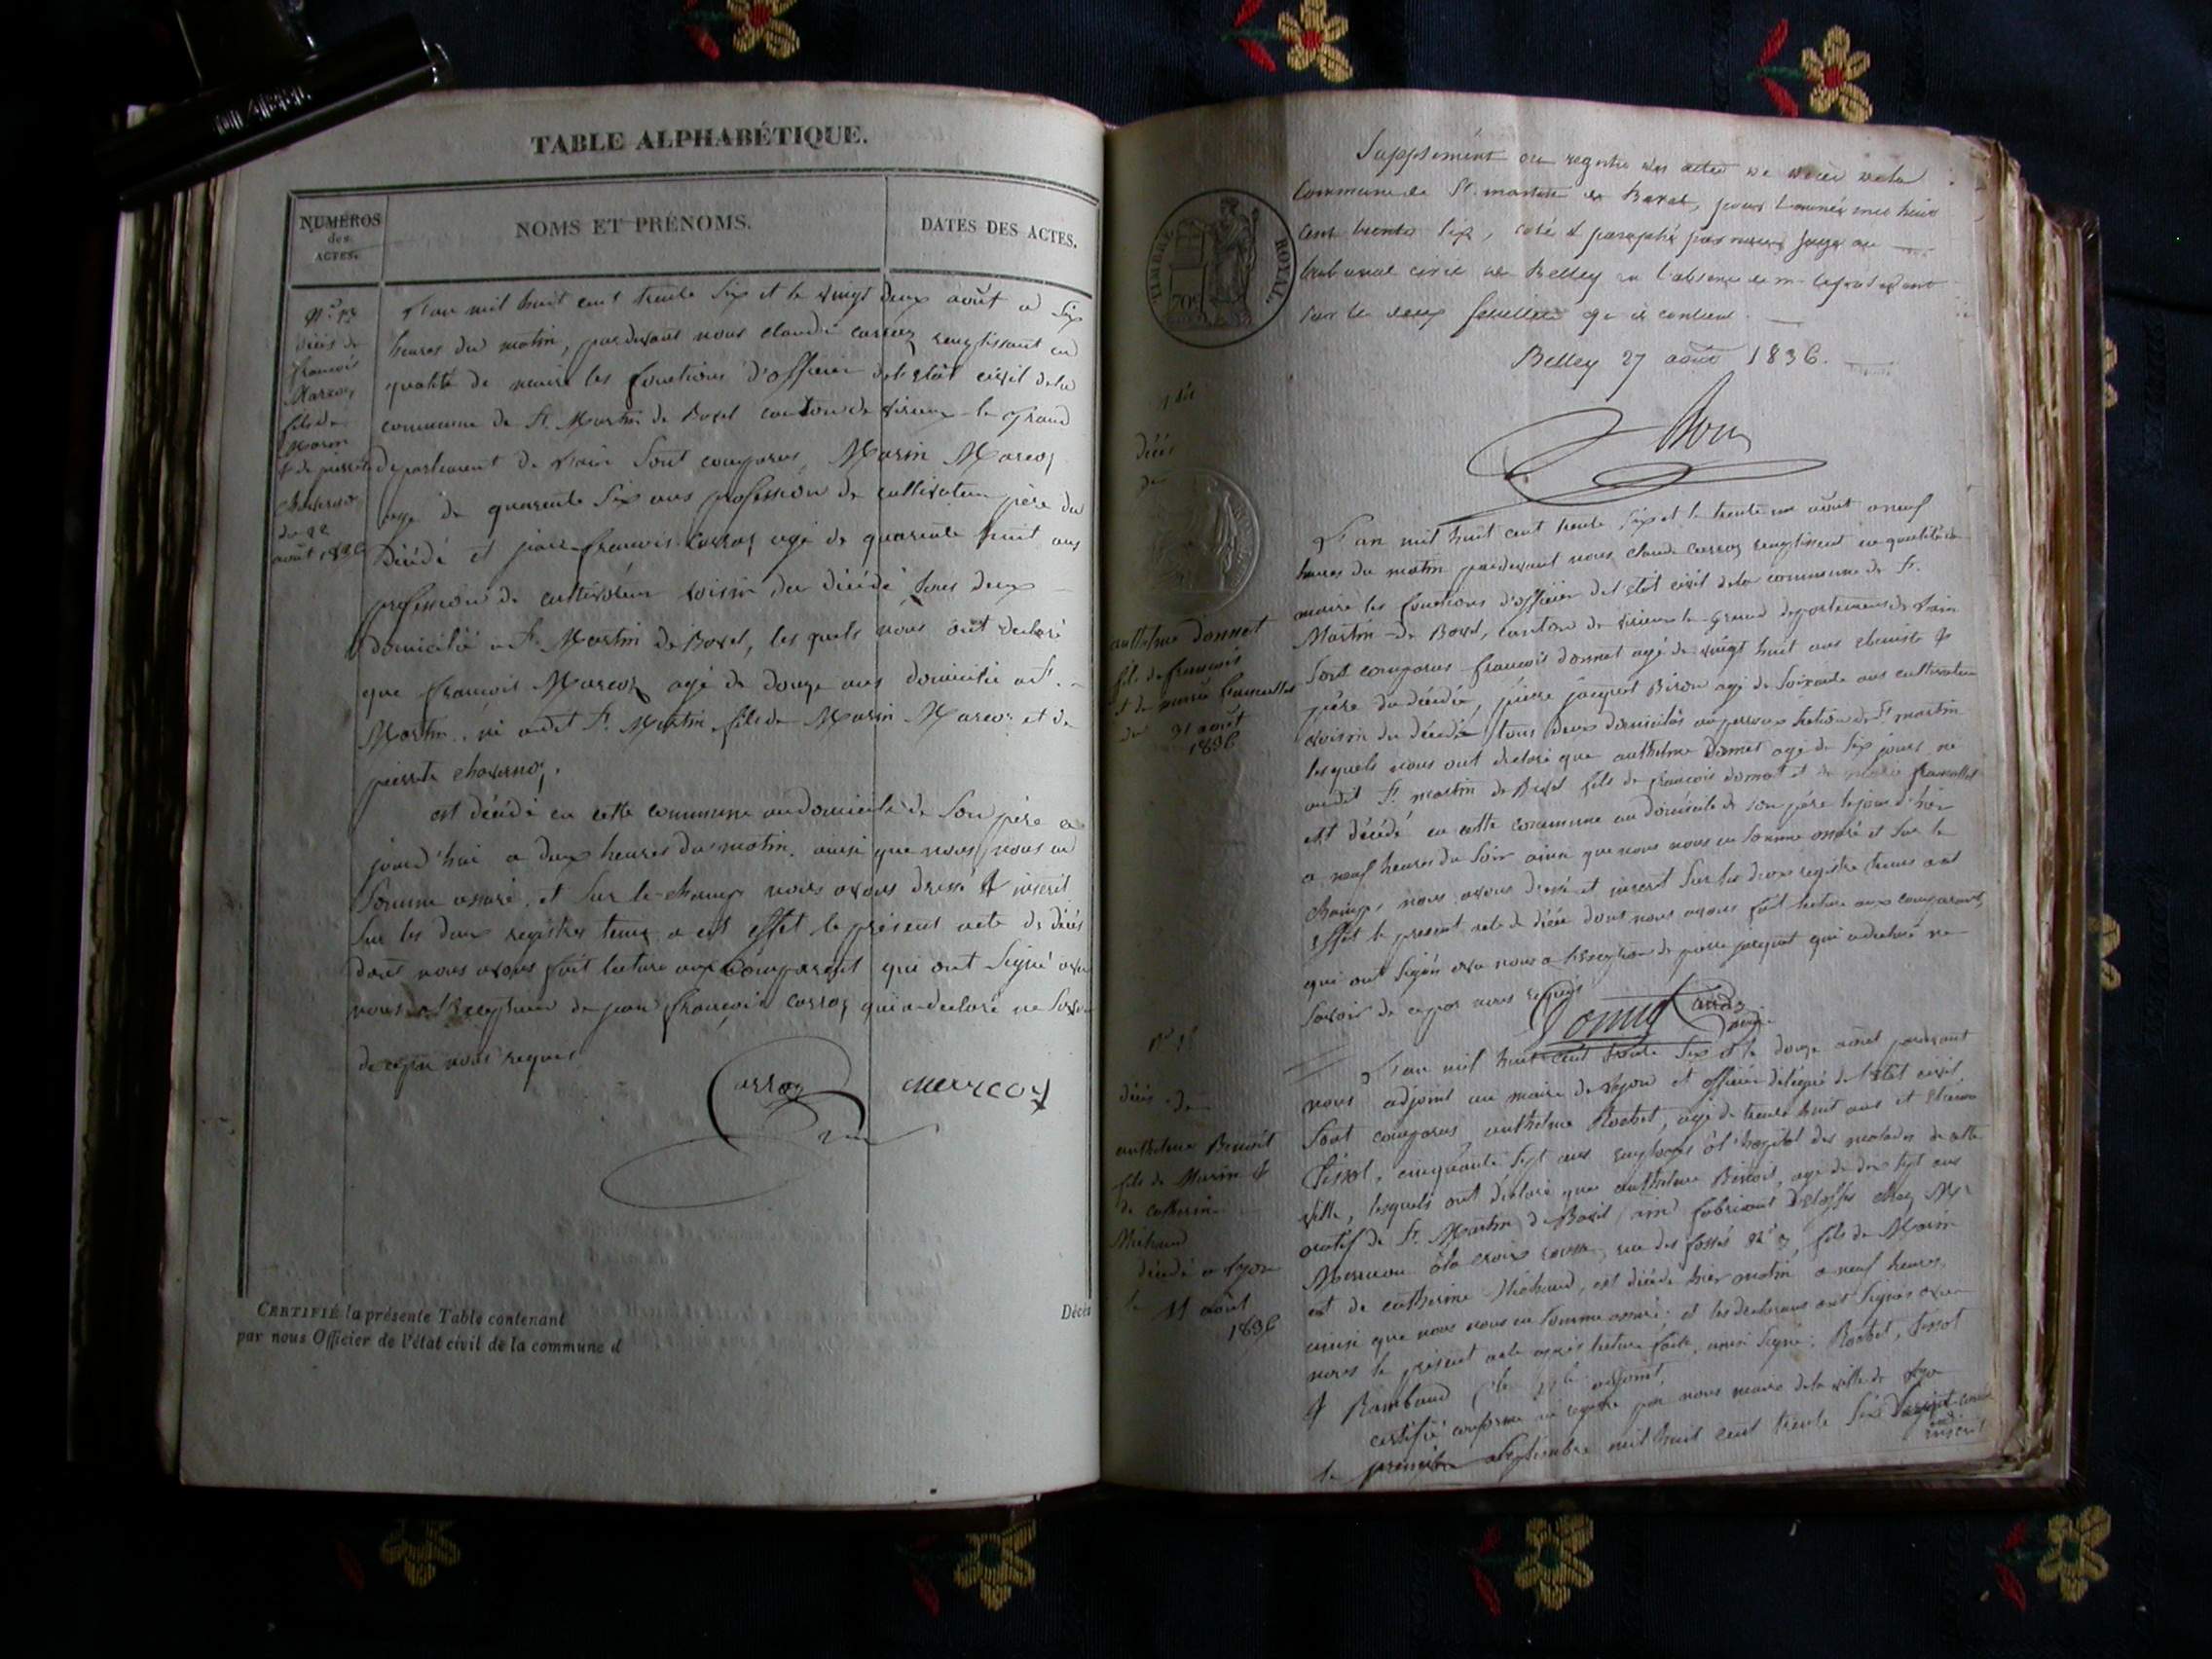 TABLE ALPHABÉTIQUE.
NUMÉROS
des
ACTES.
NOMS ET PRÉNOMS.
DATES DES ACTES.
décès de
francois
Marcoz
fils de
Marin
& de pierrette
Chavernoz
du 22
août 1836
L'an mil huit cent trente six et le vingt deux août a six
heures du matin, pardevant nous claude carroz remplissant en
qualité de maire les fonctions d'officier de l'état civil de la
commune de St. Martin de Bavel canton de virieu-le-Grand
departement de l'ain sont comparus, Marin Marcoz
age de quarente six ans profession de cultivateur père du
décédé et jean francois carroz agé de quarente huit ans
profession de cultivateur voisin du décédé, tous deux
domicilié a St. Martin de Bavel, les quels nous ont declaré
que francois Marcoz agé de douze ans domicilié a St.
Martin, né audit St. Martin, fils de Marin Marcoz et de
pierrette chavernoz.
est décédé en cette commune au domicile de son père a
jourd'hui a deux heures du matin, ainsi que nous nous en
somme assuré, et sur le-champ nous avons dressé & inscrit
sur les deux registres tenus a cet effet le présent acte de décès
dont nous avons fait lecture aux comparant qui ont signé avec
nous a l'exception de jean francois carroz qui a declaré ne savoir
de ce par nous requis
Carroz
marcoz
CERTIFIÉ la présente Table contenant
Décès
par nous Officier de l'état civil de la commune d
Supplément au registre des actes de décès de la
Commune de St. martin de Bavel, pour l'année mil huit
cent trente six, coté & paraphé par nous juge au
tribunal civil de Belley en l'absence de mr le président
sur les deux feuillets qu'il contient.
Belley 27 août 1836.
TIMBRE ROYAL
70c
décès
de
anthelme donnet
fils de francois
et de marie francillet
du 31 août
1836
L'an mil huit cent trente six et le trente un août a neuf
heures du matin pardevant nous claude carroz remplissant en qualité de
maire les fonctions d'officier de l'état civil de la commune de St.
Martin-de Bavel, canton de virieu le-Grand departement de l'ain
sont comparus francois donnet agé de vingt huit ans &
père du décédé, pierre jacquet agé de soixante ans cultivateur
voisin du décédé, tous deux domicilés St. martin
lesquels nous ont declaré que anthelme donnet agé de six jours né
audit St. martin de Bavel fils de francois donnet et de marie francillet
est décédé en cette commune au domicile de son père le jour d'hier
a neuf heures du soir ainsi que nous nous en somme assuré et sur le
champ, nous avons dressé et inscrit sur les deux registre tenus a cet
effet le present acte de décés dont nous avons fait lecture aux comparant,
qui ont signés avec nous a l'exception de pierre jacquet qui a declaré ne
savoir de ce par nous requis
Donnet Carroz
décès de
anthelme Benoit
fils de Marin &
de catherine
Michaud
décédé a lyon
le 11 août
1836
L'an mil huit cent trente six et le douze août pardevant
nous adjoint au maire de lyon et officier délégué de l'état civil
sont comparus anthelme Rochet, agé de trente huit ans et Etienne
Tissot, cinquante sept ans employés à l'hopital des malades de cette
ville, lesquels ont déclaré que anthelme Benoit, age de dix sept ans
natif de St. Martin de Bavel, fabricant d'étoffes chez Mr
à la croix rousse, rue des fossés no 3, fils de Marin
et de catherine Michaud, est décédé hier matin a neuf heures,
ainsi que nous nous en somme assuré; et les declarans ont signés avec
nous le présent acte après lecture faite, ainsi signé: Rochet, Tissot
& Rambaud adjoint.
certifié conforme au registre par nous maire de la ville de lyon
le premier septembre mil huit cent trente six
inscrit